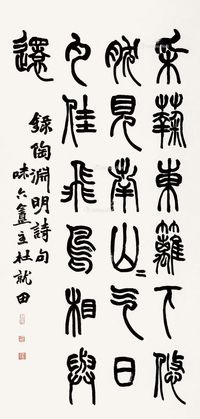 采蘜東籬下悠
然見南山〻气日
夕佳飛鳥相與
還
錄陶淵明詩句
味六盦主杜就田